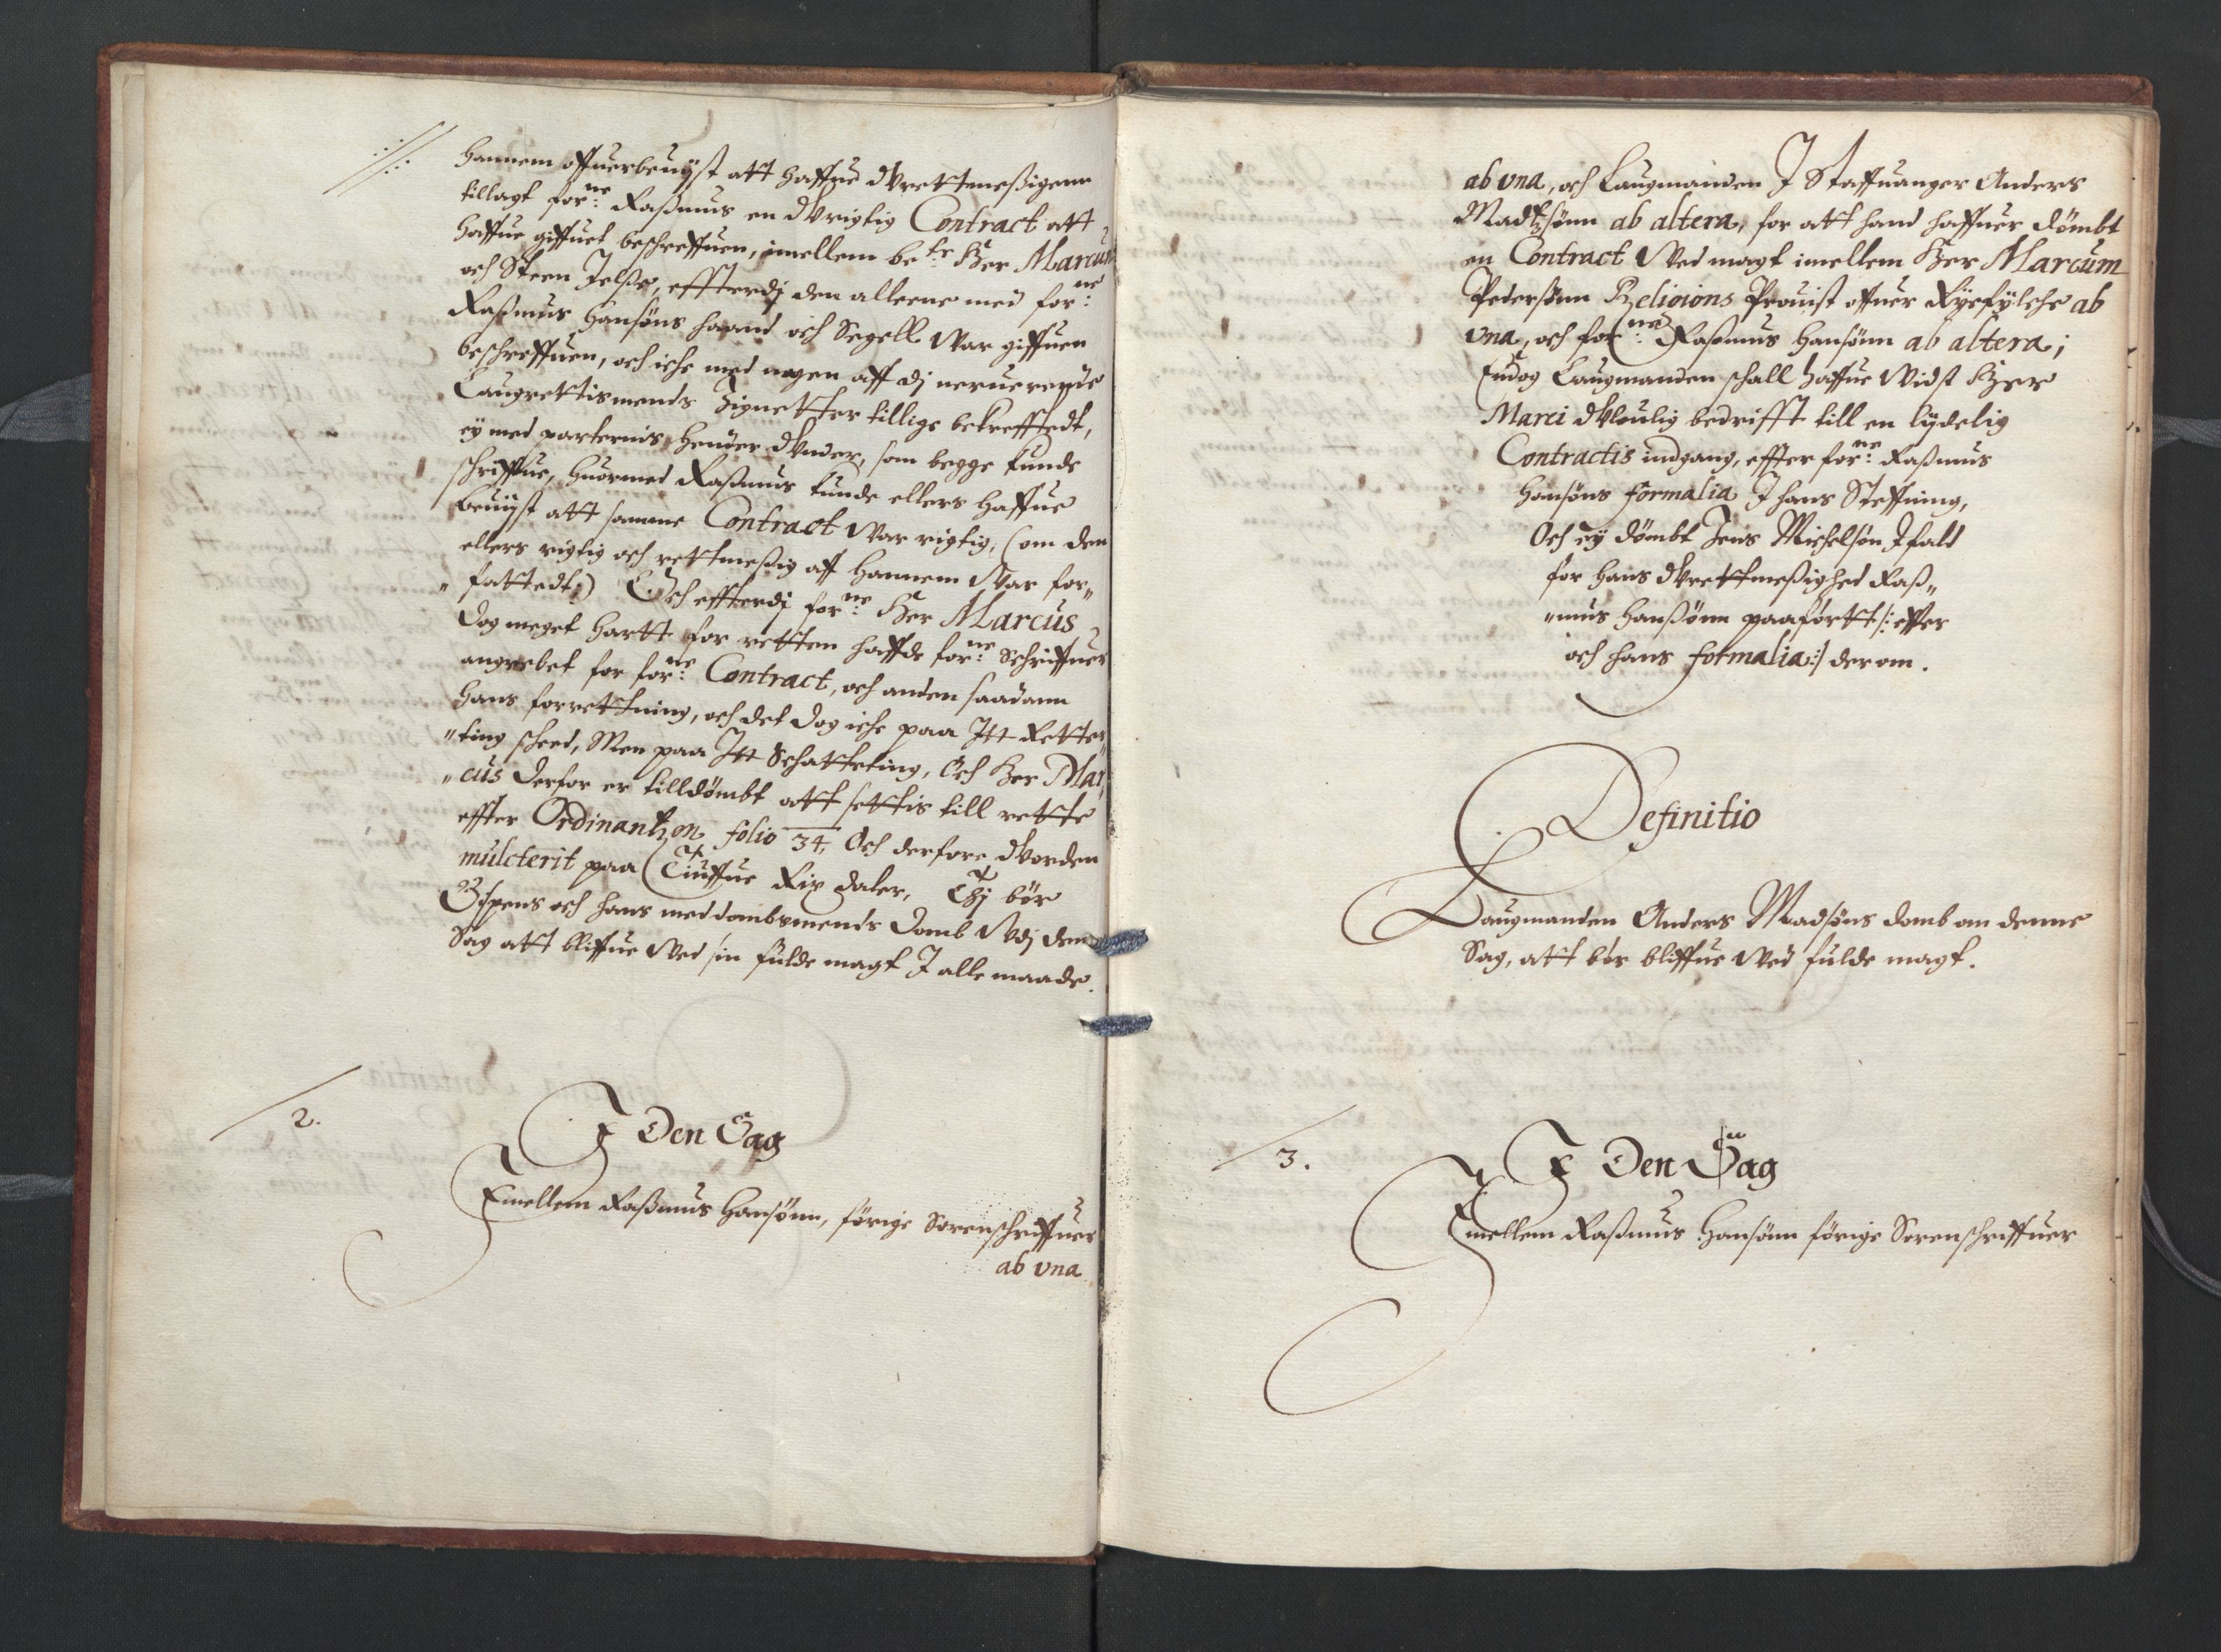 Hannem offuerbeuijst att haffue Vrettmeßigenn
tillagt forne: Raßmus en Vrigtig Contract att
haffue giffuet beschreffuen, imellem bete: Her Marcum
och Steen Jelße, effterdj den alleene med forne:
Raßmus Hansøns haand och Segell Var giffuen
beschreffuen, och iche med nogen aff dj neruerende
Laugrettismends Zignetter tillige bekrefftedt,
ej med parternis hender Vnder, som begge kunde
schriffue, huormed Raßmus kunde ellers haffue
beuijst att samme Contract Var rigtig, (om den
ellers rigtig och rettmeßig aff hannem Var for„
„fattedt) Och effterdj forne: Her Marcus
dog meget hartt for retten haffde forne: Schriffuer
angrebet for forne: Contract, och anden saadann
hans forrettning, och det dog iche paa Itt Retter„
„ting scheed, Men paa Itt Schatteting, Och Her Mar„
„cus derfor er tilldømbt att settis till rette
effter Ordinantzen folio 34, Och derfore Vorden
mulcterit paa Tiuffue Rix daler, Thj bør
Bispens och hans meddombsmends Domb Vdj denne
Sag att bliffue Ved sin fulde magt J alle maade.
2.
J Den Sag
Emellem Raßmus Hansønn, førige Sorenschriffuer
ab vna
ab vna, och Laugmanden J Staffuanger Anders
Madtzsønn ab altera, for att hand haffuer dømbt
en Contract Ved magt imellem Her Marcum
Pedersønn Religions Prouist offuer Ryefylche ab
vna, och forne: Raßmus Hansønn ab altera;
Endog Laugmanden schall haffue Vidst Her
Marci Vloulig bedrifft till en lydelig
Contractis indgang, effter forne: Raßmus
Hansøns formalia J hans Steffning,
Och ej dømbt Jens Michelsøn J fald
for hans Vrettmeßighed Raß„
„mus Hanßønn paaførtt /: effter
och hans formalia :/ derom.
Definitio
Laugmanden Anders Madsøns domb om denne
Sag, att bør bliffue Ved fulde magt.
3.
J Den Sag
Emellem Raßmus Hansønn førige Sorenschriffuer